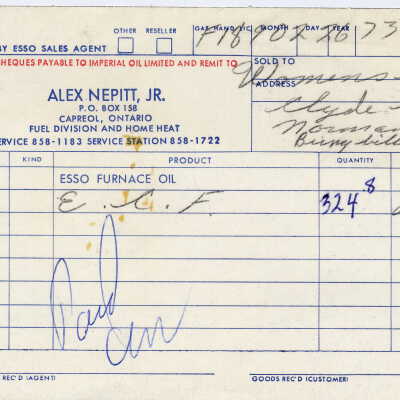 OTHER RESELLER
GAS HAND. TKT. MONTH DAY YEAR
BY ESSO SALES AGENT
F18902 26 73
CHEQUES PAYABLE TO IMPERIAL OIL LIMITED AND REMIT TO
SOLD TO
Womens
ADDRESS
ALEX NEPITT, JR.
P.O. BOX 158
CAPREOL, ONTARIO
FUEL DIVISION AND HOME HEAT
SERVICE 858-1183 SERVICE STATION 858-1722
Clyde
Norman
KIND PRODUCT QUANTITY
ESSO FURNACE OIL
E. C. F. 324.8
Paid
REC'D (AGENT) GOODS REC'D (CUSTOMER)